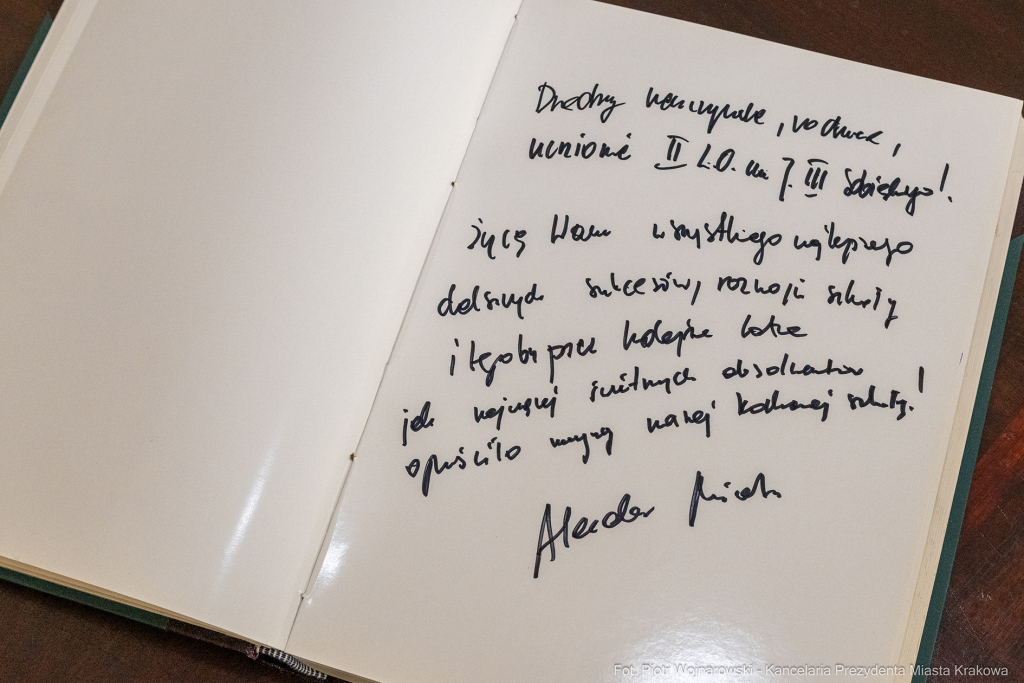 Drodzy nauczyciele, rodzice,
uczniowie II L.O. im J. III Sobieskiego!
życzę Wam wszystkiego najlepszego
dalszych sukcesów, rozwoju szkoły
i tego by przez kolejne lata
jak najwięcej świetnych absolwentów
opuściło mury naszej kochanej szkoły!
Aleksander Miszalski
Fot. Piotr Wojnarowski - Kancelaria Prezydenta Miasta Krakowa